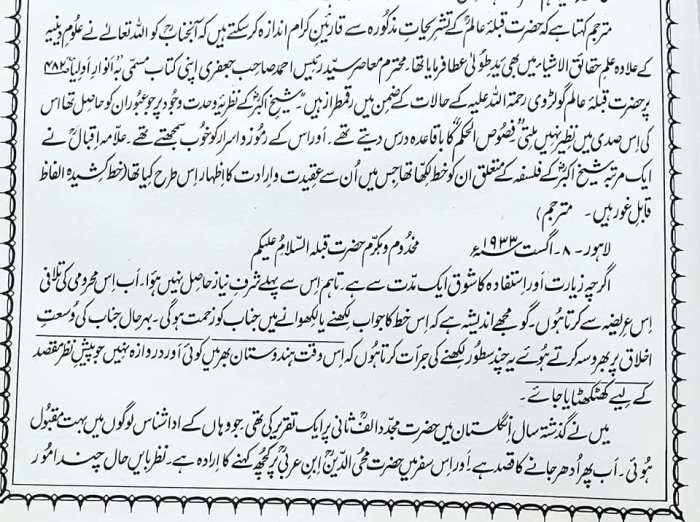 مترجم کہتا ہے کہ حضرت قبلۂ عالمؒ کے تشریحاتِ مذکورہ سے قارئینِ کرام اندازہ کر سکتے ہیں کہ آنجنابؒ کو اللہ تعالےٰ نے علومِ دینیہ
کے علاوہ علمِ حقائق الاشیاء میں بھی یدِ طولیٰ عطا فرمایا تھا۔ محترم معاصر سید رئیس احمد صاحب جعفری اپنی کتاب مسمّٰی بہ انوارِ اولیاءؒ ۴۸۲
پر حضرت قبلۂ عالم گولڑوی رحمۃ اللہ علیہ کے حالات کے ضمن میں رقمطراز ہیں۔ شیخِ اکبرؒ کے نظریۂ وحدت وجود پر جو عبور ان کو حاصل تھا اس
کی اِس صدی میں نظیر نہیں ملتی۔ فصوص الحکم کا باقاعدہ درس دیتے تھے۔ اور اس کے رموز و اسرار کو خوب سمجھتے تھے۔ علامہ اقبالؒ نے
ایک مرتبہ شیخِ اکبرؒ کے فلسفہ کے متعلق ان کو خط لکھا تھا جس میں اُن سے عقیدت و ارادت کا اظہار اِس طرح کیا تھا (خط کشیدہ الفاظ
قابلِ غور ہیں۔ مترجم)
لاہور۔ ۸۔ اگست ۱۹۳۳ء مخدوم و مکرم حضرت قبلہ السّلامُ علیکم
اگرچہ زیارت اور استفادہ کا شوق ایک مدّت سے ہے۔ تاہم اِس سے پہلے شرفِ نیاز حاصل نہیں ہوا۔ اب اِس محرومی کی تلافی
اِس عریضہ سے کرتا ہوں۔ گو مجھے اندیشہ ہے کہ اِس خط کا جواب لکھنے یا لکھوانے میں جناب کو زحمت ہو گی۔ بہرحال جناب کی وُسعتِ
اخلاق پر بھروسہ کرتے ہُوئے یہ چند سطور لکھنے کی جرأت کرتا ہُوں کہ اِس وقت ہندوستان بھر میں کوئی اور دروازہ نہیں جو پیشِ نظر مقصد
کے لیے کھٹکھٹایا جائے۔
میں نے گذشتہ سال اِنگلستان میں حضرت مجدّد الف ثانیؒ پر ایک تقریر کی تھی جو وہاں کے ادا شناس لوگوں میں بہت مقبول
ہُوئی۔ اب پھر اُدھر جانے کا قصد ہے اور اِس سفر میں حضرت محی الدینؒ ابنِ عربیؒ پر کچھ کہنے کا ارادہ ہے۔ نظر بایں حال چند امُور